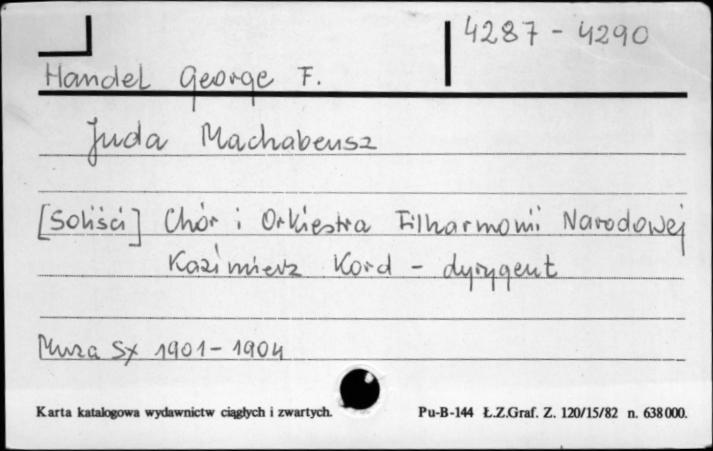 4287 - 4290
Handel George F.
Juda Machabeusz
[Soliści] Chór i Orkiestra Filharmonii Narodowej
Kazimierz Kord - dyrygent
Muza SX 1901 - 1904
Karta katalogowa wydawnictw ciągłych i zwartych. Pu-B-144 Ł.Z.Graf. Z. 120/15/82 n. 638000.